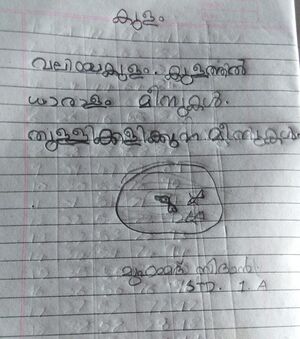 കുളം
വലിയകുളം. കുളത്തിൽ
ധാരാളം മീനുകൾ.
തുള്ളികളിക്കുന്ന മീനുകൾ
മുഹമ്മദ് നിദാൻ
STD. 1. A